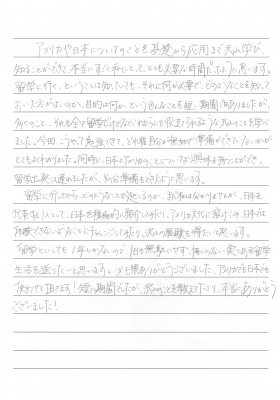 アメリカや日本についてのことを基礎から応用まで沢山学び、
知ることができて、本当にすごく私にとって、とても必要な時間だったように思います。
留学に行く、ということは知っていても、それに何が必要で、どのようなことを知って
おいた方がよいのか、目的は何か、という色んなことを短い期間でありましたが、
多くのこと、それも全て留学だけでなくこれからにも役立てられるような沢山のことを学べ
ました。今回、こうやって勉強できて、どれ程自分が無知で準備ができていないかが
とてもよくわかりました。同時に、日本とアメリカのことについてより興味を持つことができ、
留学出発に遅れましたが、その分準備もできたように思います。
留学に行ってから、どのようなことが起こるのか、まだ私は分かりませんが、日本を
代表する1人として、日本を積極的に紹介したり、アメリカ文化に溶けこみ、日本では
体験できないようなことにチャレンジしてみたり、沢山の経験を得たいと思います。
留学といっても1年しかないので、1日も無駄にせず、悔いのない、実りある留学
生活を送りたいと思います。メモ帳ありがとうございました。アメリカでも日本でも
使わせて頂きます!短い期間でしたが、沢山のことを教えて下さり、本当にありがとう
ございました!